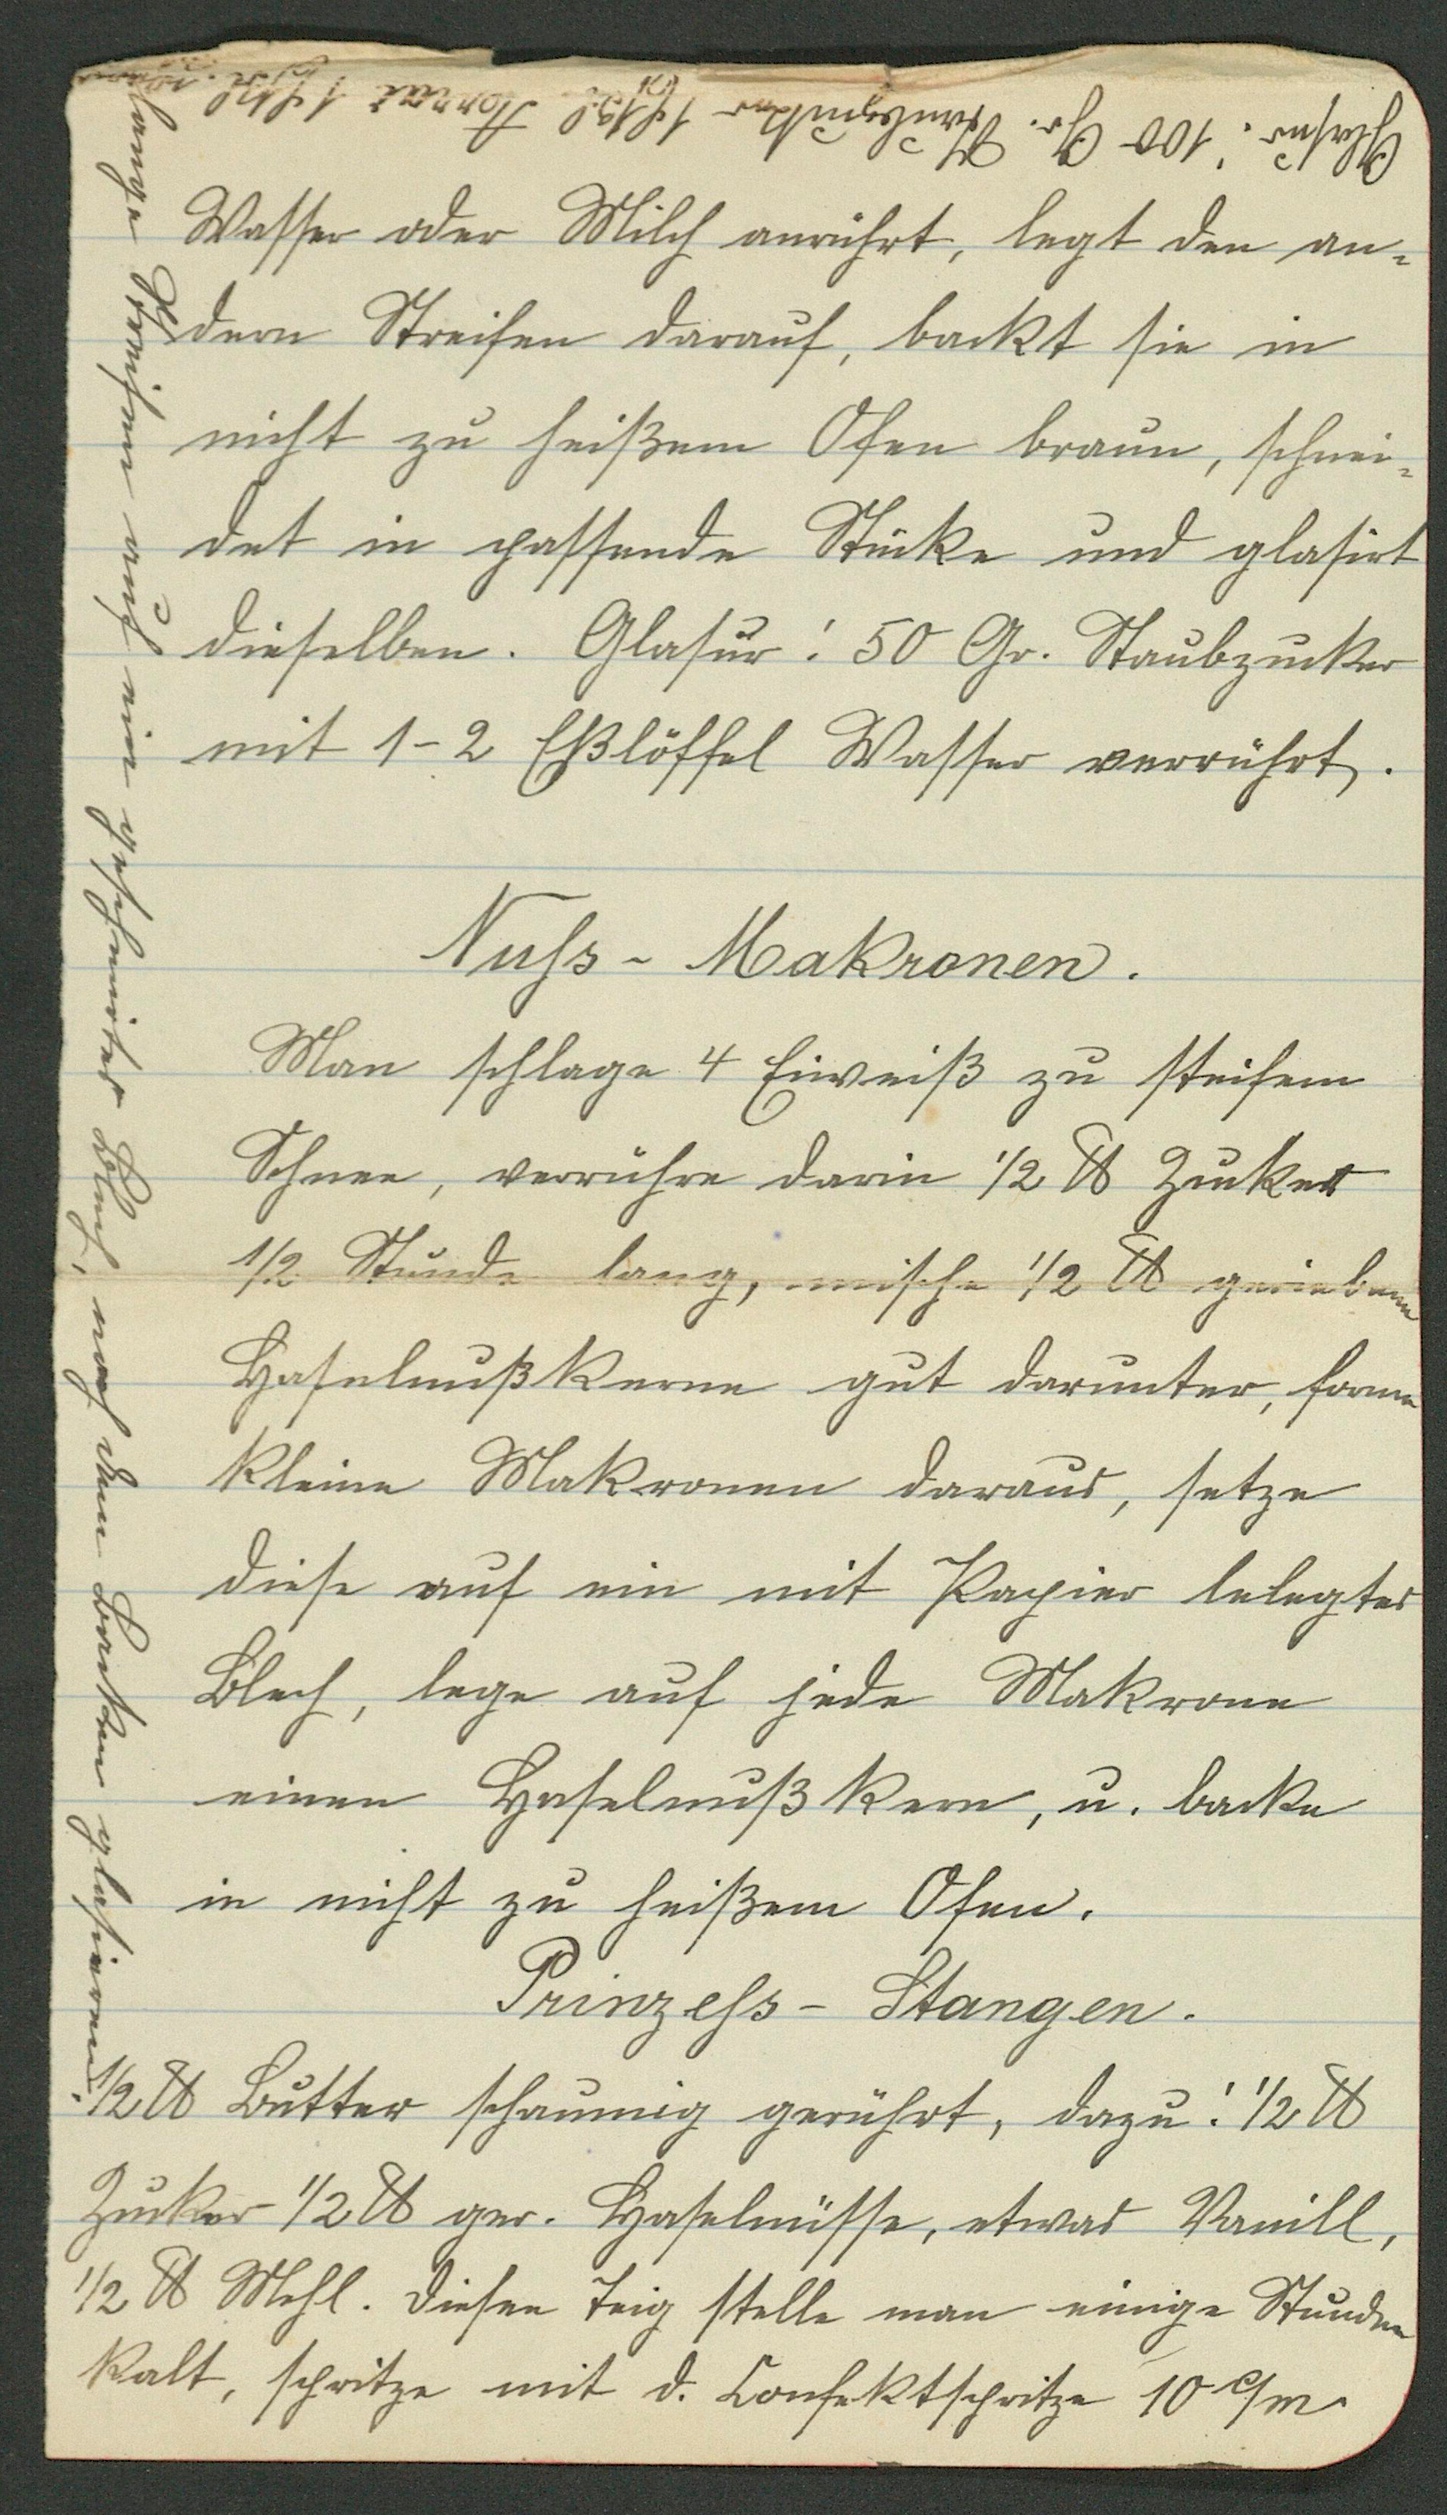 Wasser oder Milch anrührt, legt den an-
dern Streifen darauf, backt sie in
nicht zu heißem Ofen braun, schnei-
det in passende Stücke und glasirt
dieselben. Glasur: 50 Gr. Staubzucker
mit 1-2 Eßlöffel Wasser verrührt.
Nuss-Makronen.
Man schlage 4 Eiweiß zu steifem
Schnee, verrühre darin 1/2 ℔ Zucker
1/2 Stunde lang, mische 1/2 ℔ geriebene
Haselnußkerne gut darunter, forme
kleine Makronen daraus, setze
diese auf ein mit Papier belegtes
Blech, lege auf jede Makrone
einen Haselnußkern, u. backe
in nicht zu heißem Ofen.
Prinzess-Stangen.
1/2 ℔ Butter schaumig gerührt, dazu: 1/2 ℔
Zucker 1/2 ℔ ger. Haselnüsse, etwas Vanill,
1/2 ℔ Mehl. Diesen Teig stelle man einige Stunden
kalt, spritze mit d. Confektspritze 10 c/m
lange Streifen auf ein geschmirtes Blech, nach dem Backen glasieren.
Glasur: 100 Gr. Staubzucker 1 Eßl. 1 Eßl.